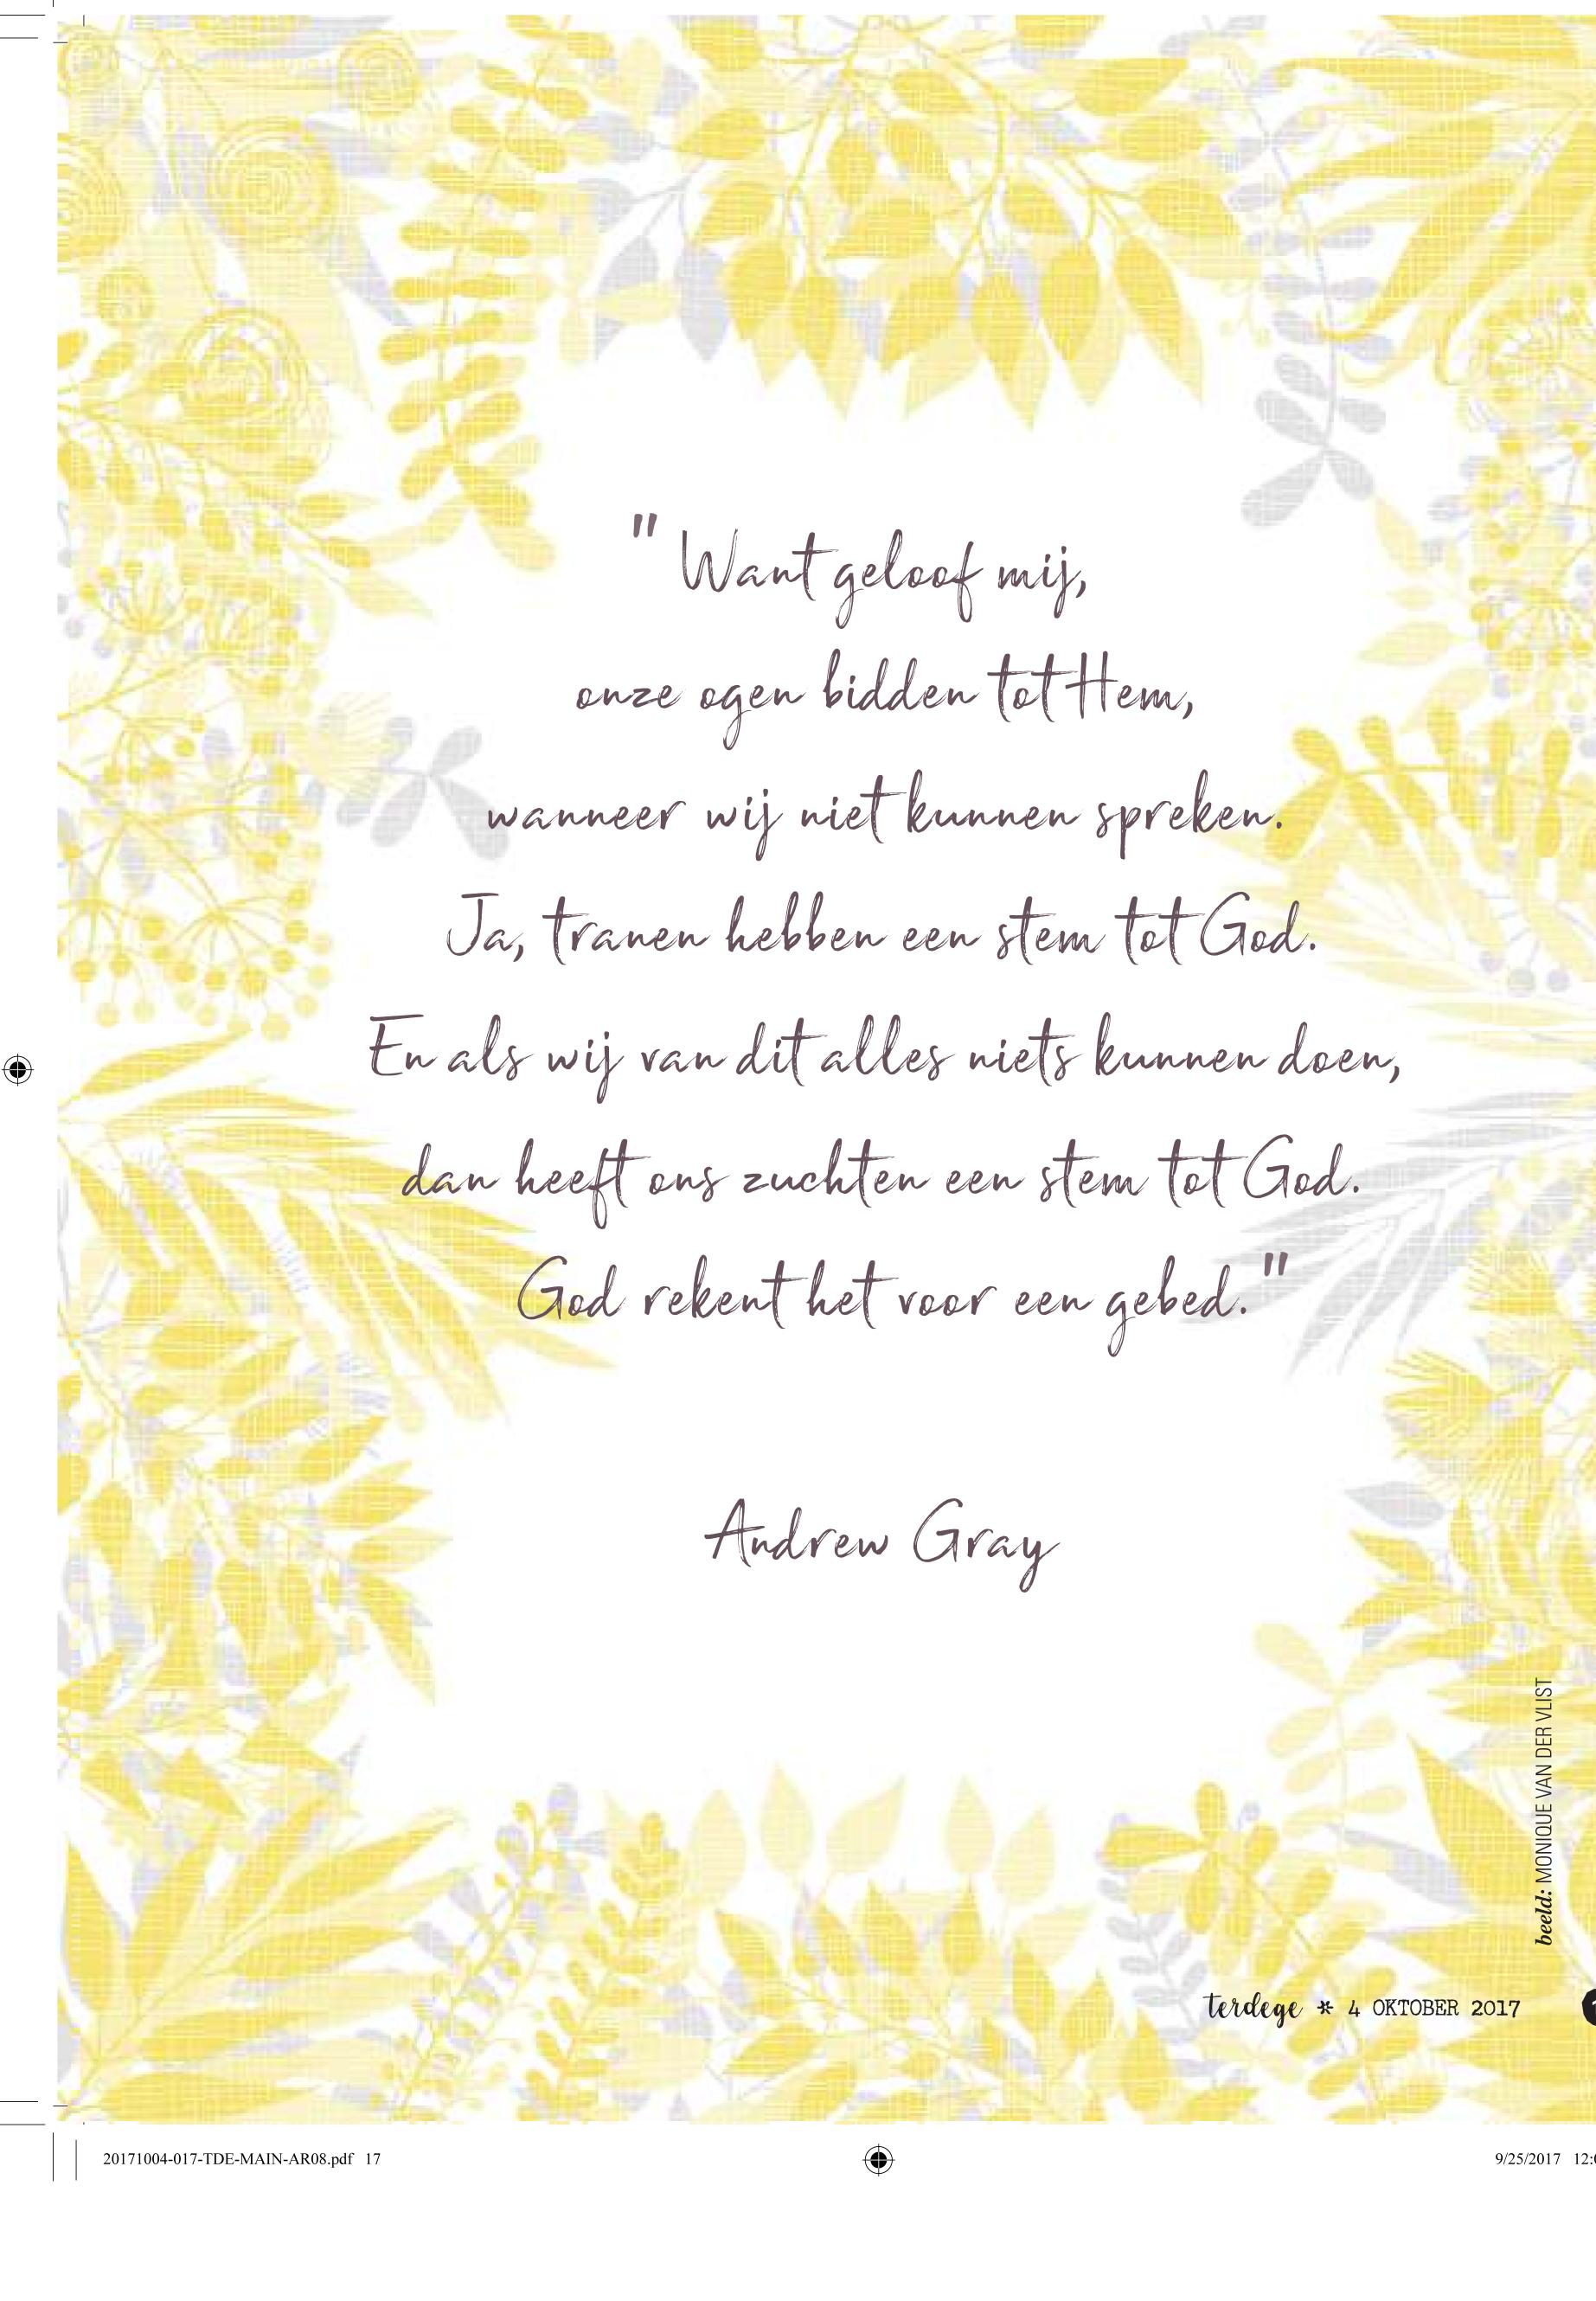 "Want geloof mij,
onze ogen bidden tot Hem,
wanneer wij niet kunnen spreken.
Ja, tranen hebben een stem tot God.
En als wij van dit alles niets kunnen doen,
dan heeft ons zuchten een stem tot God.
God rekent het voor een gebed."
Andrew Gray
beeld: MONIQUE VAN DER VLIST
terdege * 4 OKTOBER 2017
20171004-017-TDE-MAIN-AR08.pdf 17
9/25/2017